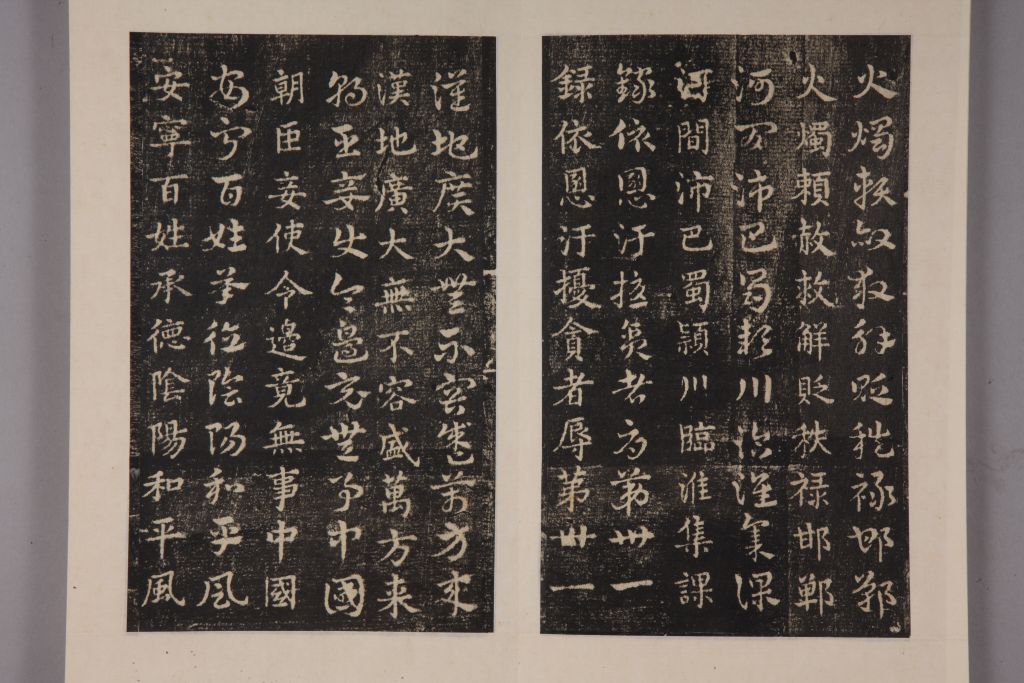 火燭頼赦救解貶秩禄邯鄲
火燭頼赦救解貶秩禄邯鄲
河間沛巴蜀潁川臨淮集課
河間沛巴蜀潁川臨淮集課
録依恩汙擾貪者辱第卅一
録依恩汙擾貪者辱第卅一
漢地廣大無不容盛萬方來
漢地廣大無不容盛萬方来
朝臣妾使令邊竟無事中國
朝臣妾使令邊竟無事中國
安寧百姓承德陰陽和平風
安寧百姓承德陰陽和平風